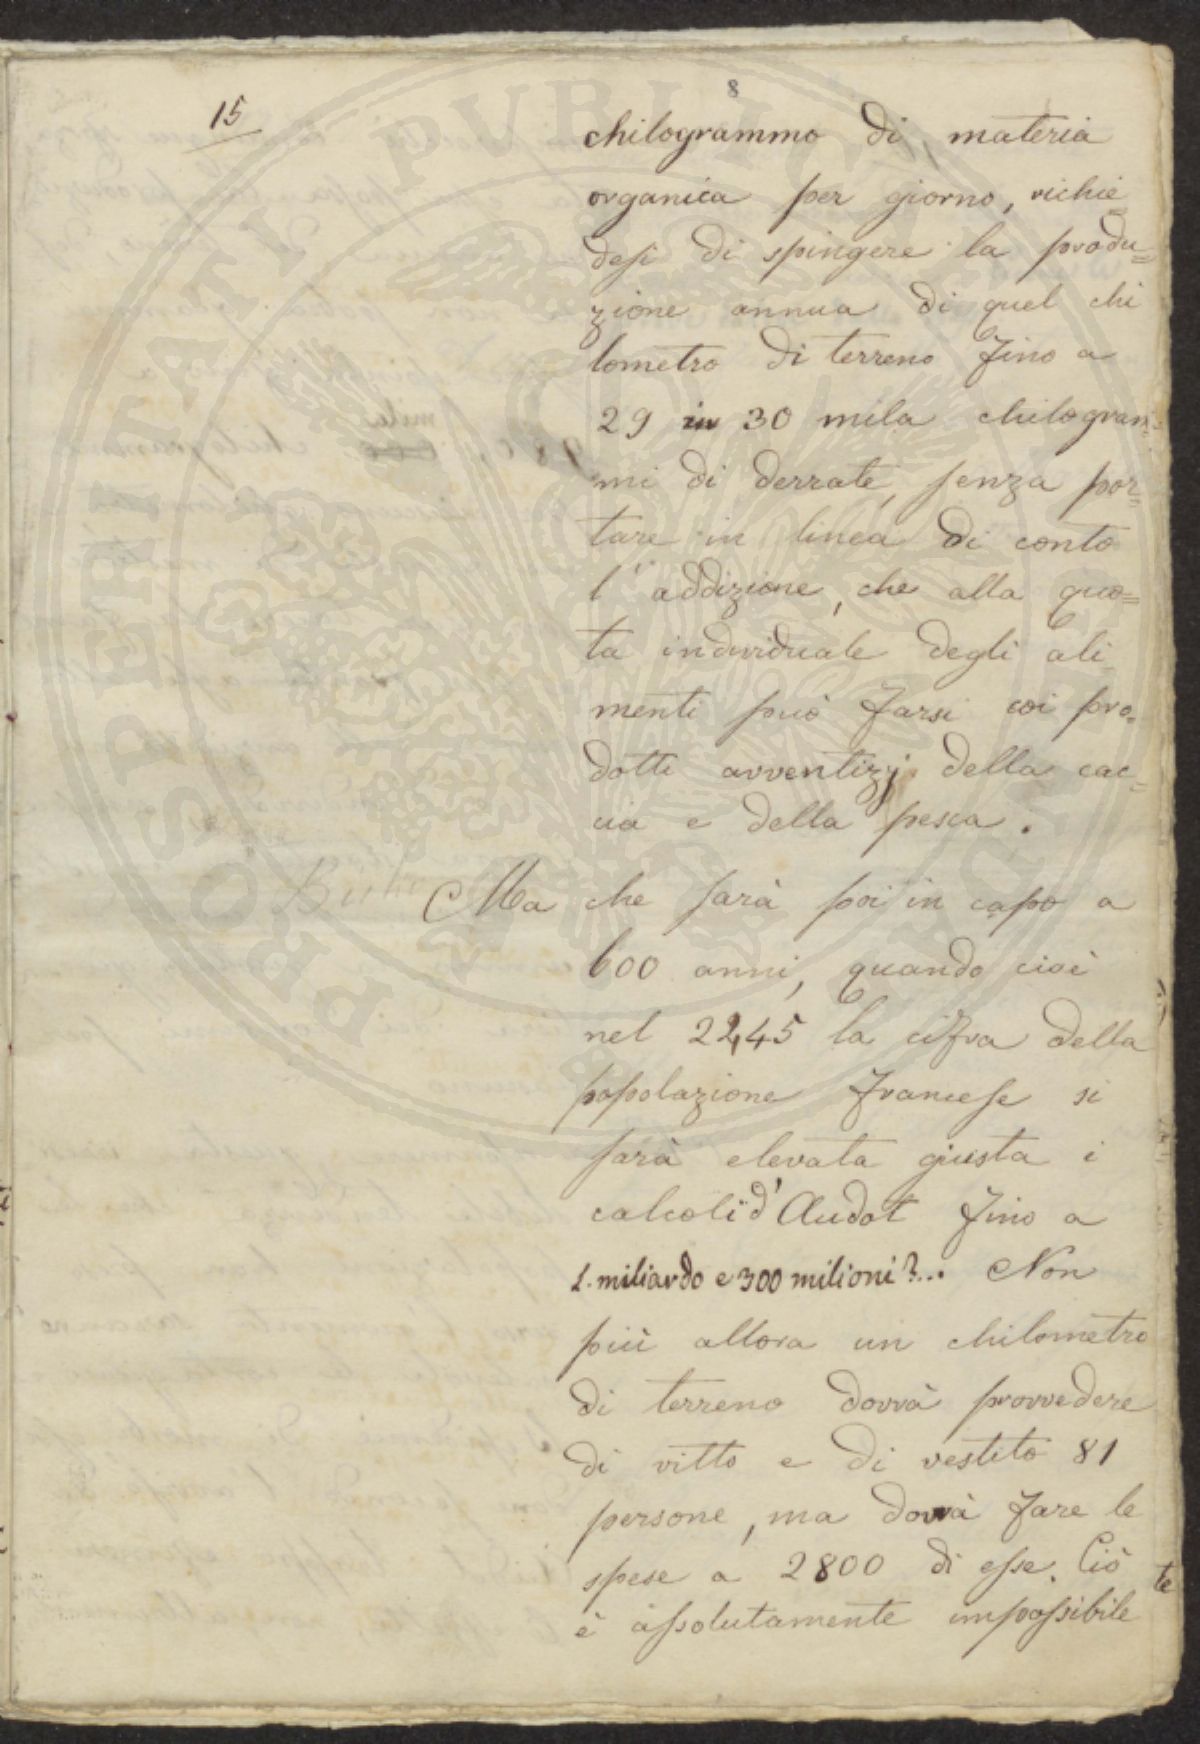 8
15
chilogrammo di materia
organica per giorno, richie=
desi di spingere la produ=
zione annua di quel chi
lometro di terreno fino a
29 in 30 mila chilogram=
mi di derrate, senza por=
tare in linea di conto
l'addizione, che alla quo=
ta individuale degli ali=
menti può farsi coi pro=
dotti avventizj della cac=
cia e della pesca.
Ma che sarà poi in capo a
600 anni, quando cioè
nel 2245 la cifra della
popolazione francese si
sarà elevata giusta i
calcoli d'Audot fino a
1. miliardo e 300 milioni?... Non
più allora un chilometro
di terreno dovrà provvedere
di vitto e di vestito 81
persone, ma dovrà fare le
spese a 2800 di esse. Ciò
è assolutamente impossibile
PROSPERITATI PVBLICAE